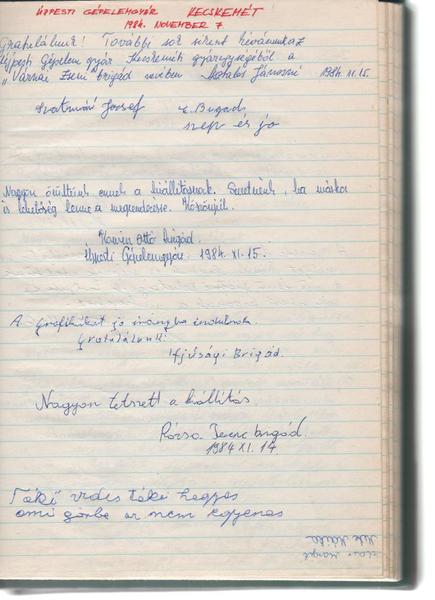 ÚJPESTI GÉPELEMGYÁR KECSKEMÉT
1984. NOVEMBER 7
Gratulálunk! További sok sikert kívánunk az
Újpesti Gépelem gyár Kecskeméti gyáregységéből a
"Várnai Zseni" brigád nevében Matalos Jánosné 1984. 11. 15.
Szatmári József E. Brigád
szép és jó
Nagyon örültünk ennek a kiállításnak. Szeretnénk, ha máskor
is lehetőség lenne a megrendezésre. Köszönjük.
Korvin Ottó brigád.
Újpesti Gépelemgyár. 1984. XI. 15.
A grafikákat jó irányba indulnak.
Gratulálunk!
Ifjúsági Brigád.
Nagyon tetszett a kiállítás
Rózsa Ferenc brigád.
1984 XI. 14
Tökű vides tökű hegyes
ami görbe az nem egyenes